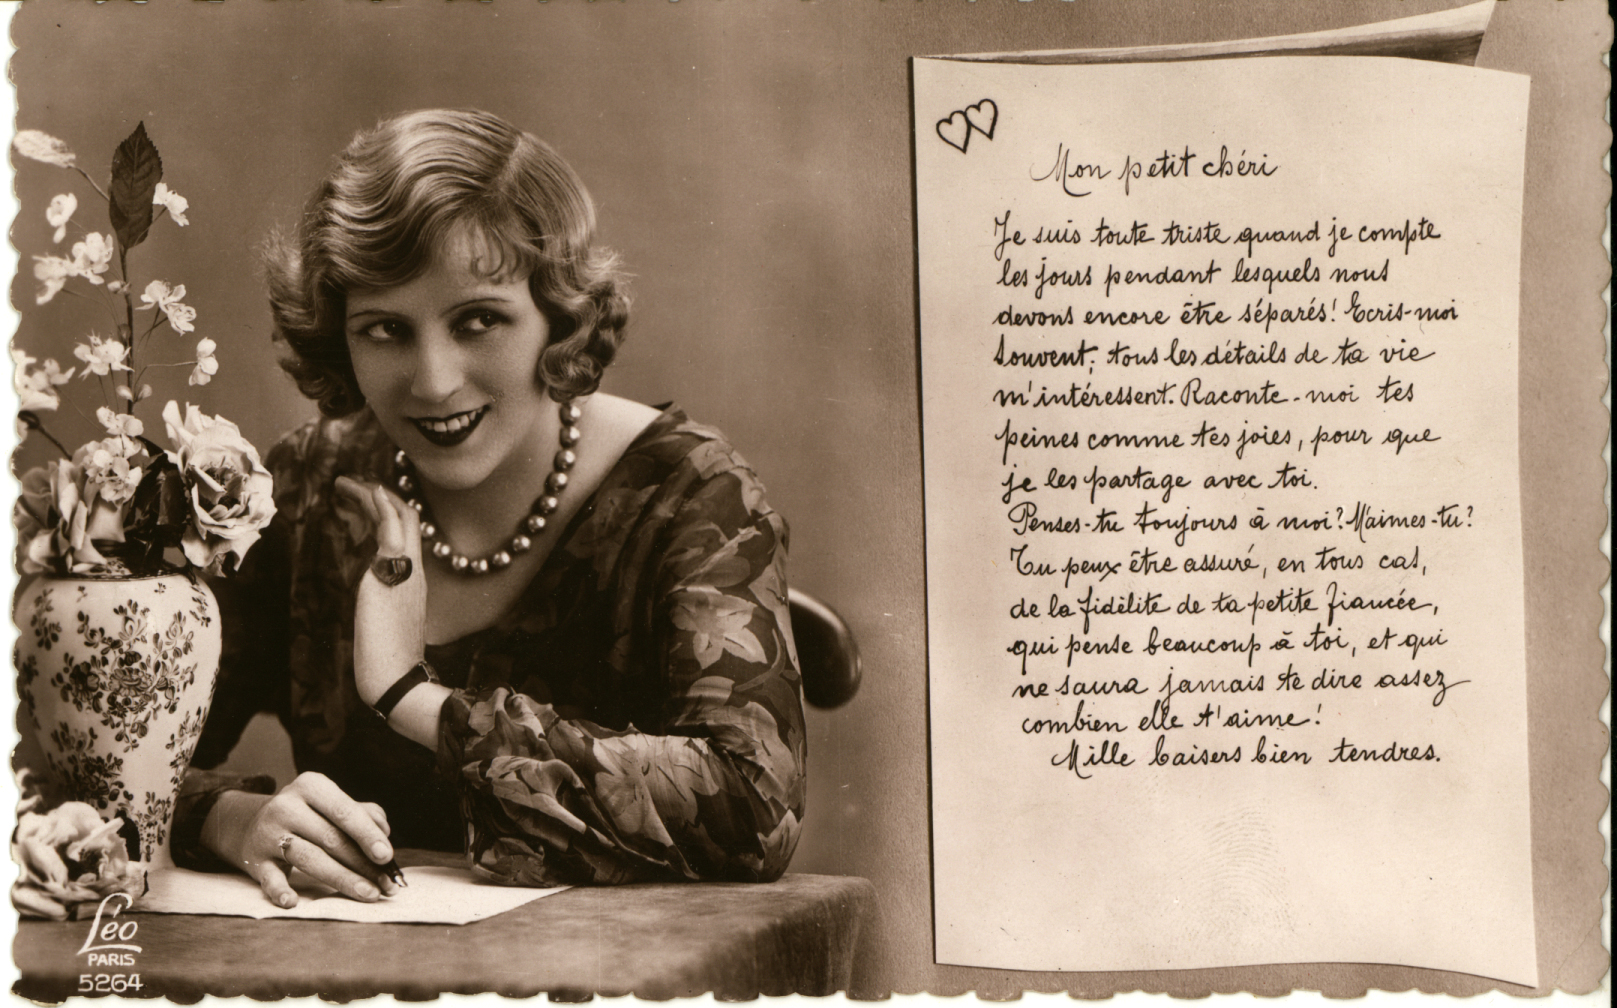 Mon petit chéri
Je suis toute triste quand je compte
les jours pendant lesquels nous
devons encore être séparés! Ecris-moi
souvent; tous les détails de ta vie
m'intéressent. Raconte-moi tes
peines comme tes joies, pour que
je les partage avec toi.
Penses-tu toujours à moi? M'aimes-tu?
Tu peux être assuré, en tous cas,
de la fidélité de ta petite fiancée,
qui pense beaucoup à toi, et qui
ne saura jamais te dire assez
combien elle t'aime!
Mille baisers bien tendres.
Léo
PARIS
5264